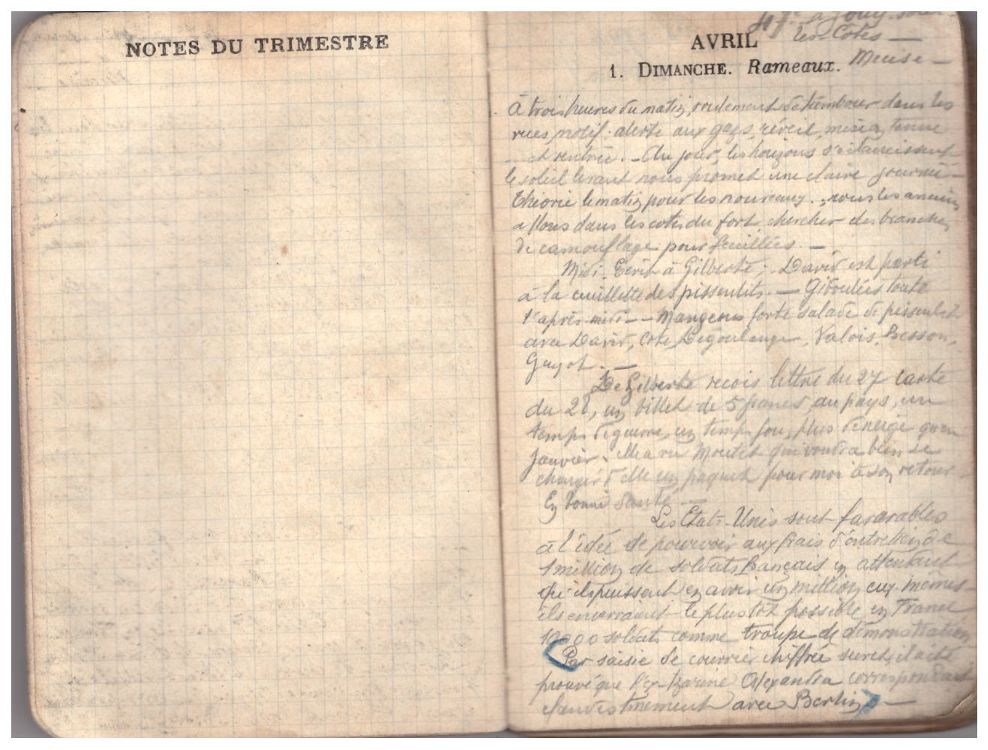 NOTES DU TRIMESTRE
à Jouy sous
les Côtes —
AVRIL
Meuse —
1. DIMANCHE. Rameaux.
à trois heures du matin, roulement de tambour dans les
rues, motif: alerte aux gaz, réveil, mise en tenue
et rentrée. — Au jour, les horizons s'éclaircissent
le soleil levant nous promet une claire journée —
théorie le matin pour les nouveaux, nous les anciens
allons dans les côtes du fort chercher des branches
de camouflage pour feuillées. —
Midi. Écris à Gilberte; David est parti
à la cueillette des pissenlits. — Giboulées toute
l'après-midi — Mangeons forte salade de pissenlits
avec David, Cote Degoulanger, Valois, Besson,
Guyot. —
De Gilberte reçois lettre du 27 carte
du 28, un billet de 5 francs, au pays, un
temps de guerre, un temps fou, plus d'neige qu'en
Janvier. Elle a vu Moutet qui voudra bien se
charger d'elle un paquet pour moi à son retour
En bonne santé. —
Les États-Unis sont favorables
à l'idée de pourvoir aux frais d'entretien de
1 million de soldats français en attendant
qu'ils puissent en avoir un million eux-mêmes
ils enverraient le plus tôt possible en France
10000 soldats comme troupe de démonstration
Par saisie de courrier chiffré
prouvé que l'ex tzarine Alexandra correspondait
clandestinement avec Berlin —